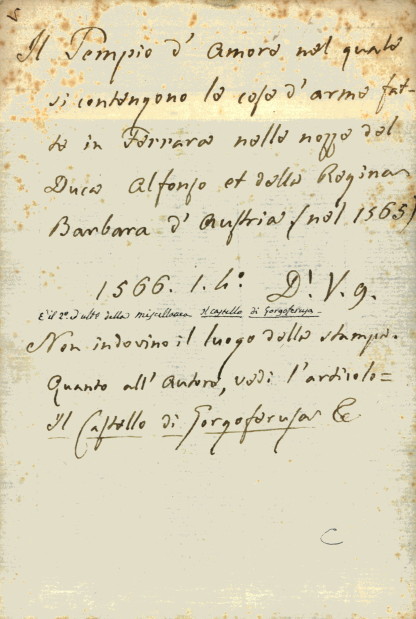 Il Tempio d' Amore nel quale
si contengono le cose d'arme fat-
te in Ferrara nelle nozze del
Duca Alfonso et della Regina
Barbara d' Austria (nel 1565)
1566. 1. 4.° D.! V. 9.
E il 2.° ed ult.° della miscellanea Il Castello di Gorgoferusa.
Non indovino il luogo della stampa.
Quanto all' Autore, vedi l'articolo =
Il Castello di Gorgoferusa &
C